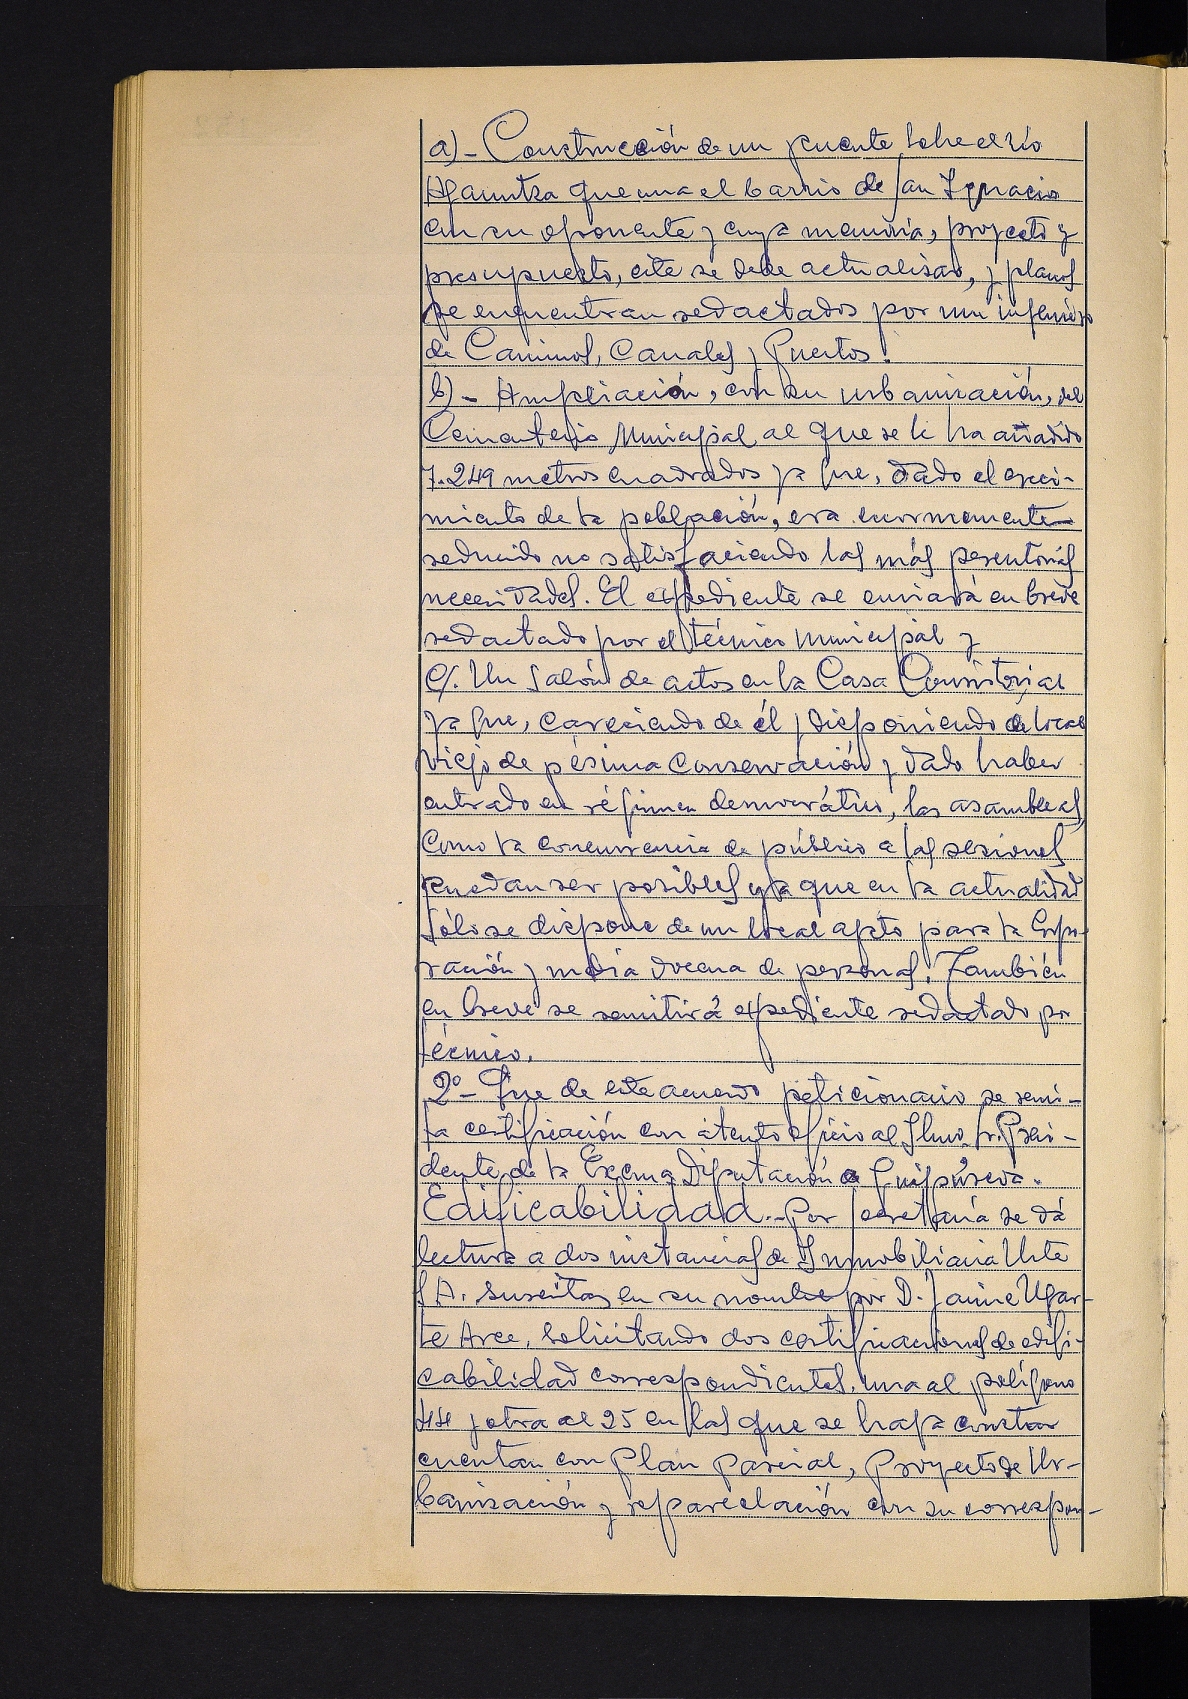 a)- Construcción de un puente sobre el río
Agauntza que una el barrio de San Ignacio
con su oponente y cuya memoria, proyecto y
presupuesto, este se debe actualisar, y planos
se enquentran redactados por un ingeniero
de Caminos, Canales y Puertos.
b)- Ampliación, con su urbanización, del
Cementerio Municipal al que se le ha añadido
7.249 metros cuadrados ya que, dado el creci-
miento de la población, era enormemente
reducido no satisfaciendo las más perentorias
necesidades. El expediente se enviará en breve
redactado por el técnico municipal y
c). Un salón de actos en la Casa Consistorial
ya que, careciendo de él y disponiendo de local
viejo de pésima conservación y dado haber
entrado en régimen democrático, las asambleas,
como la concurrencia de público a las sesiones
puedan ser posibles ya que en la actualidad
sólo se dispone de un local apto para la Corpo-
ración y media docena de personas. También
en breve se remitirá expediente redactado por
técnico.
2º- Que de este acuerdo peticionario se remi-
ta certificación con atento oficio al Ilmo. Sr. Presi-
dente de la Excma Diputación de Guipúscoa.
Edificabilidad.- Por Secretaría se dá
lectura a dos instancias de Inmobiliaria Urte
S.A. suscritas en su nombre por D. Jaime Ugar-
te Arce, solicitando dos certificaciones de edifi-
cabilidad correspondientes, una al polígono
44 y otra al 25 en las que se haga constar
cuentan con Plan Parcial, Proyecto de Ur-
banización y reparcelación con su correspon-